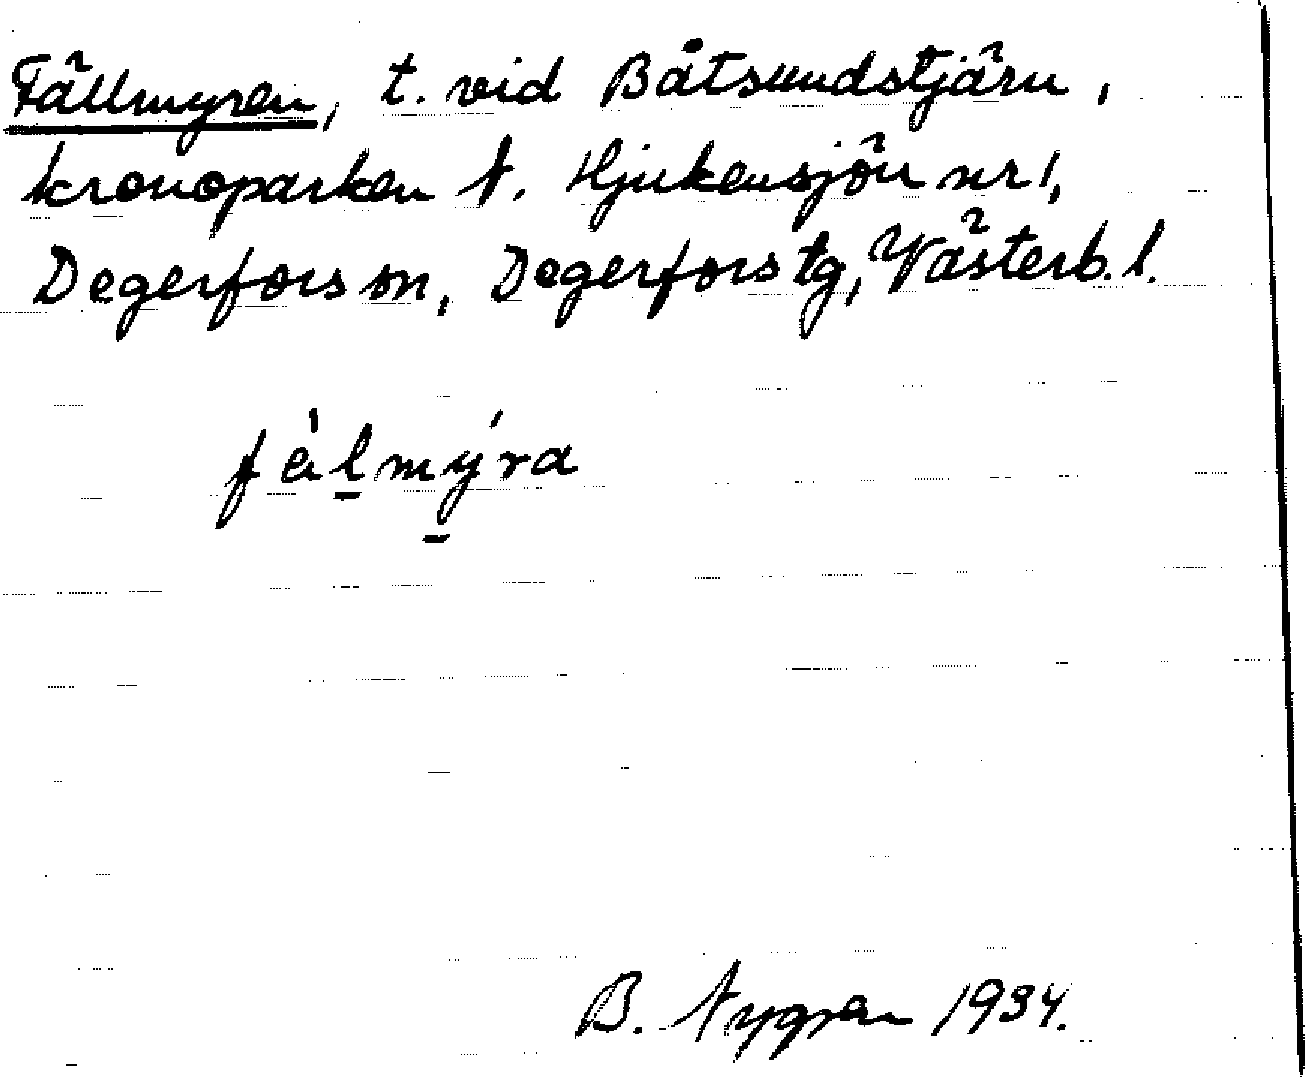 Fällmyren, t. vid Båtsundstjärn,
kronoparken N. Hjukensjön nr 1,
Degerfors sn, Degerfors tg, Västerb. l.
fàlmýra
B. Nygren 1934.